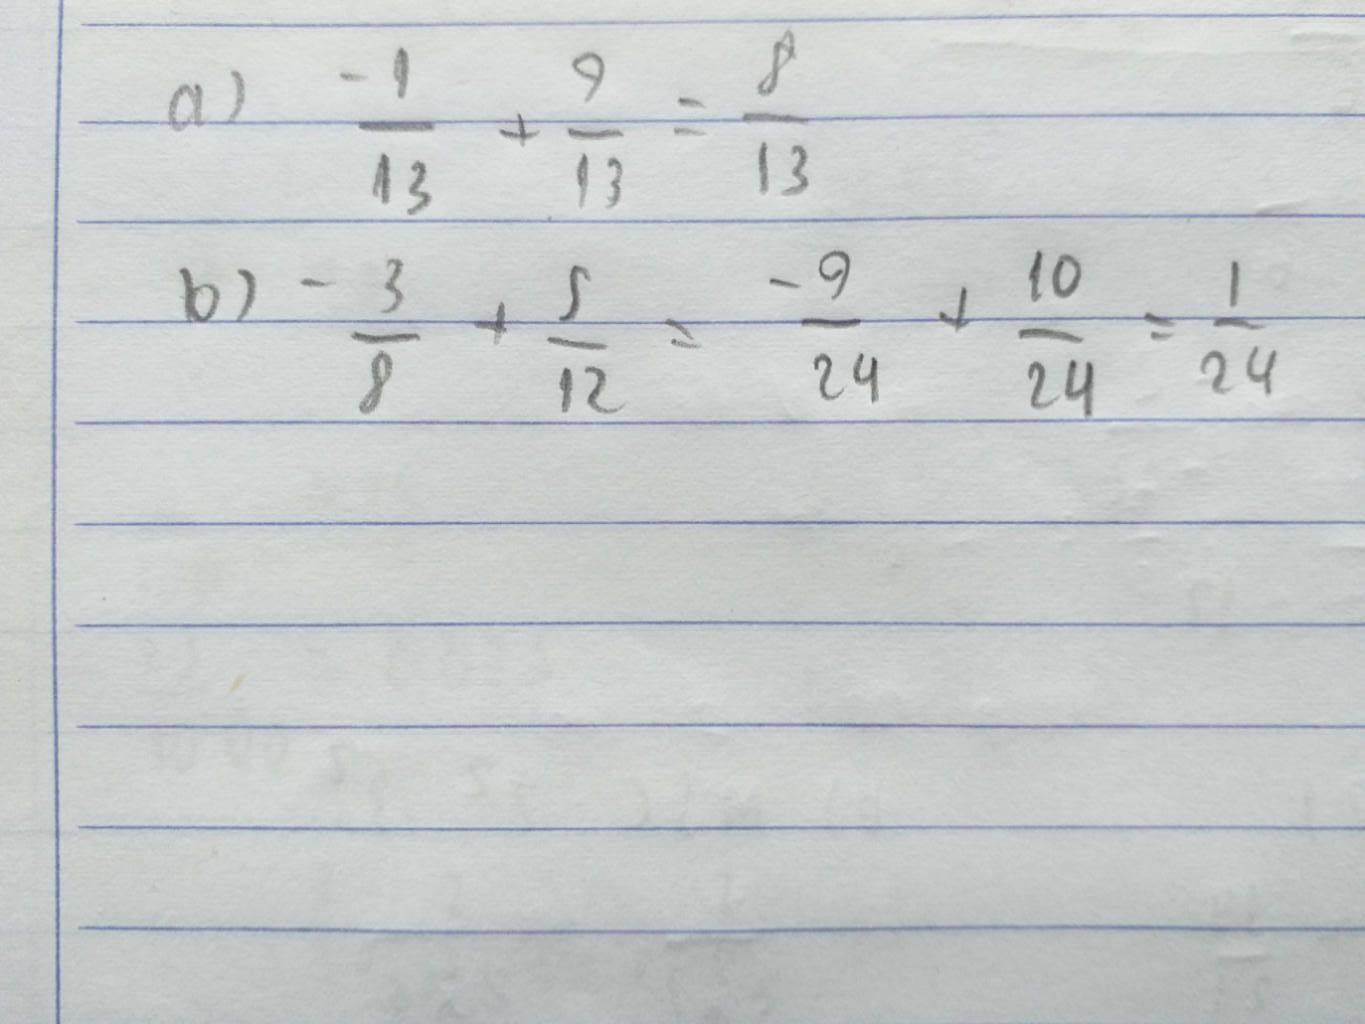 a) -1/13 + 9/13 = 8/13
b) -3/8 + 5/12 = -9/24 + 10/24 = 1/24